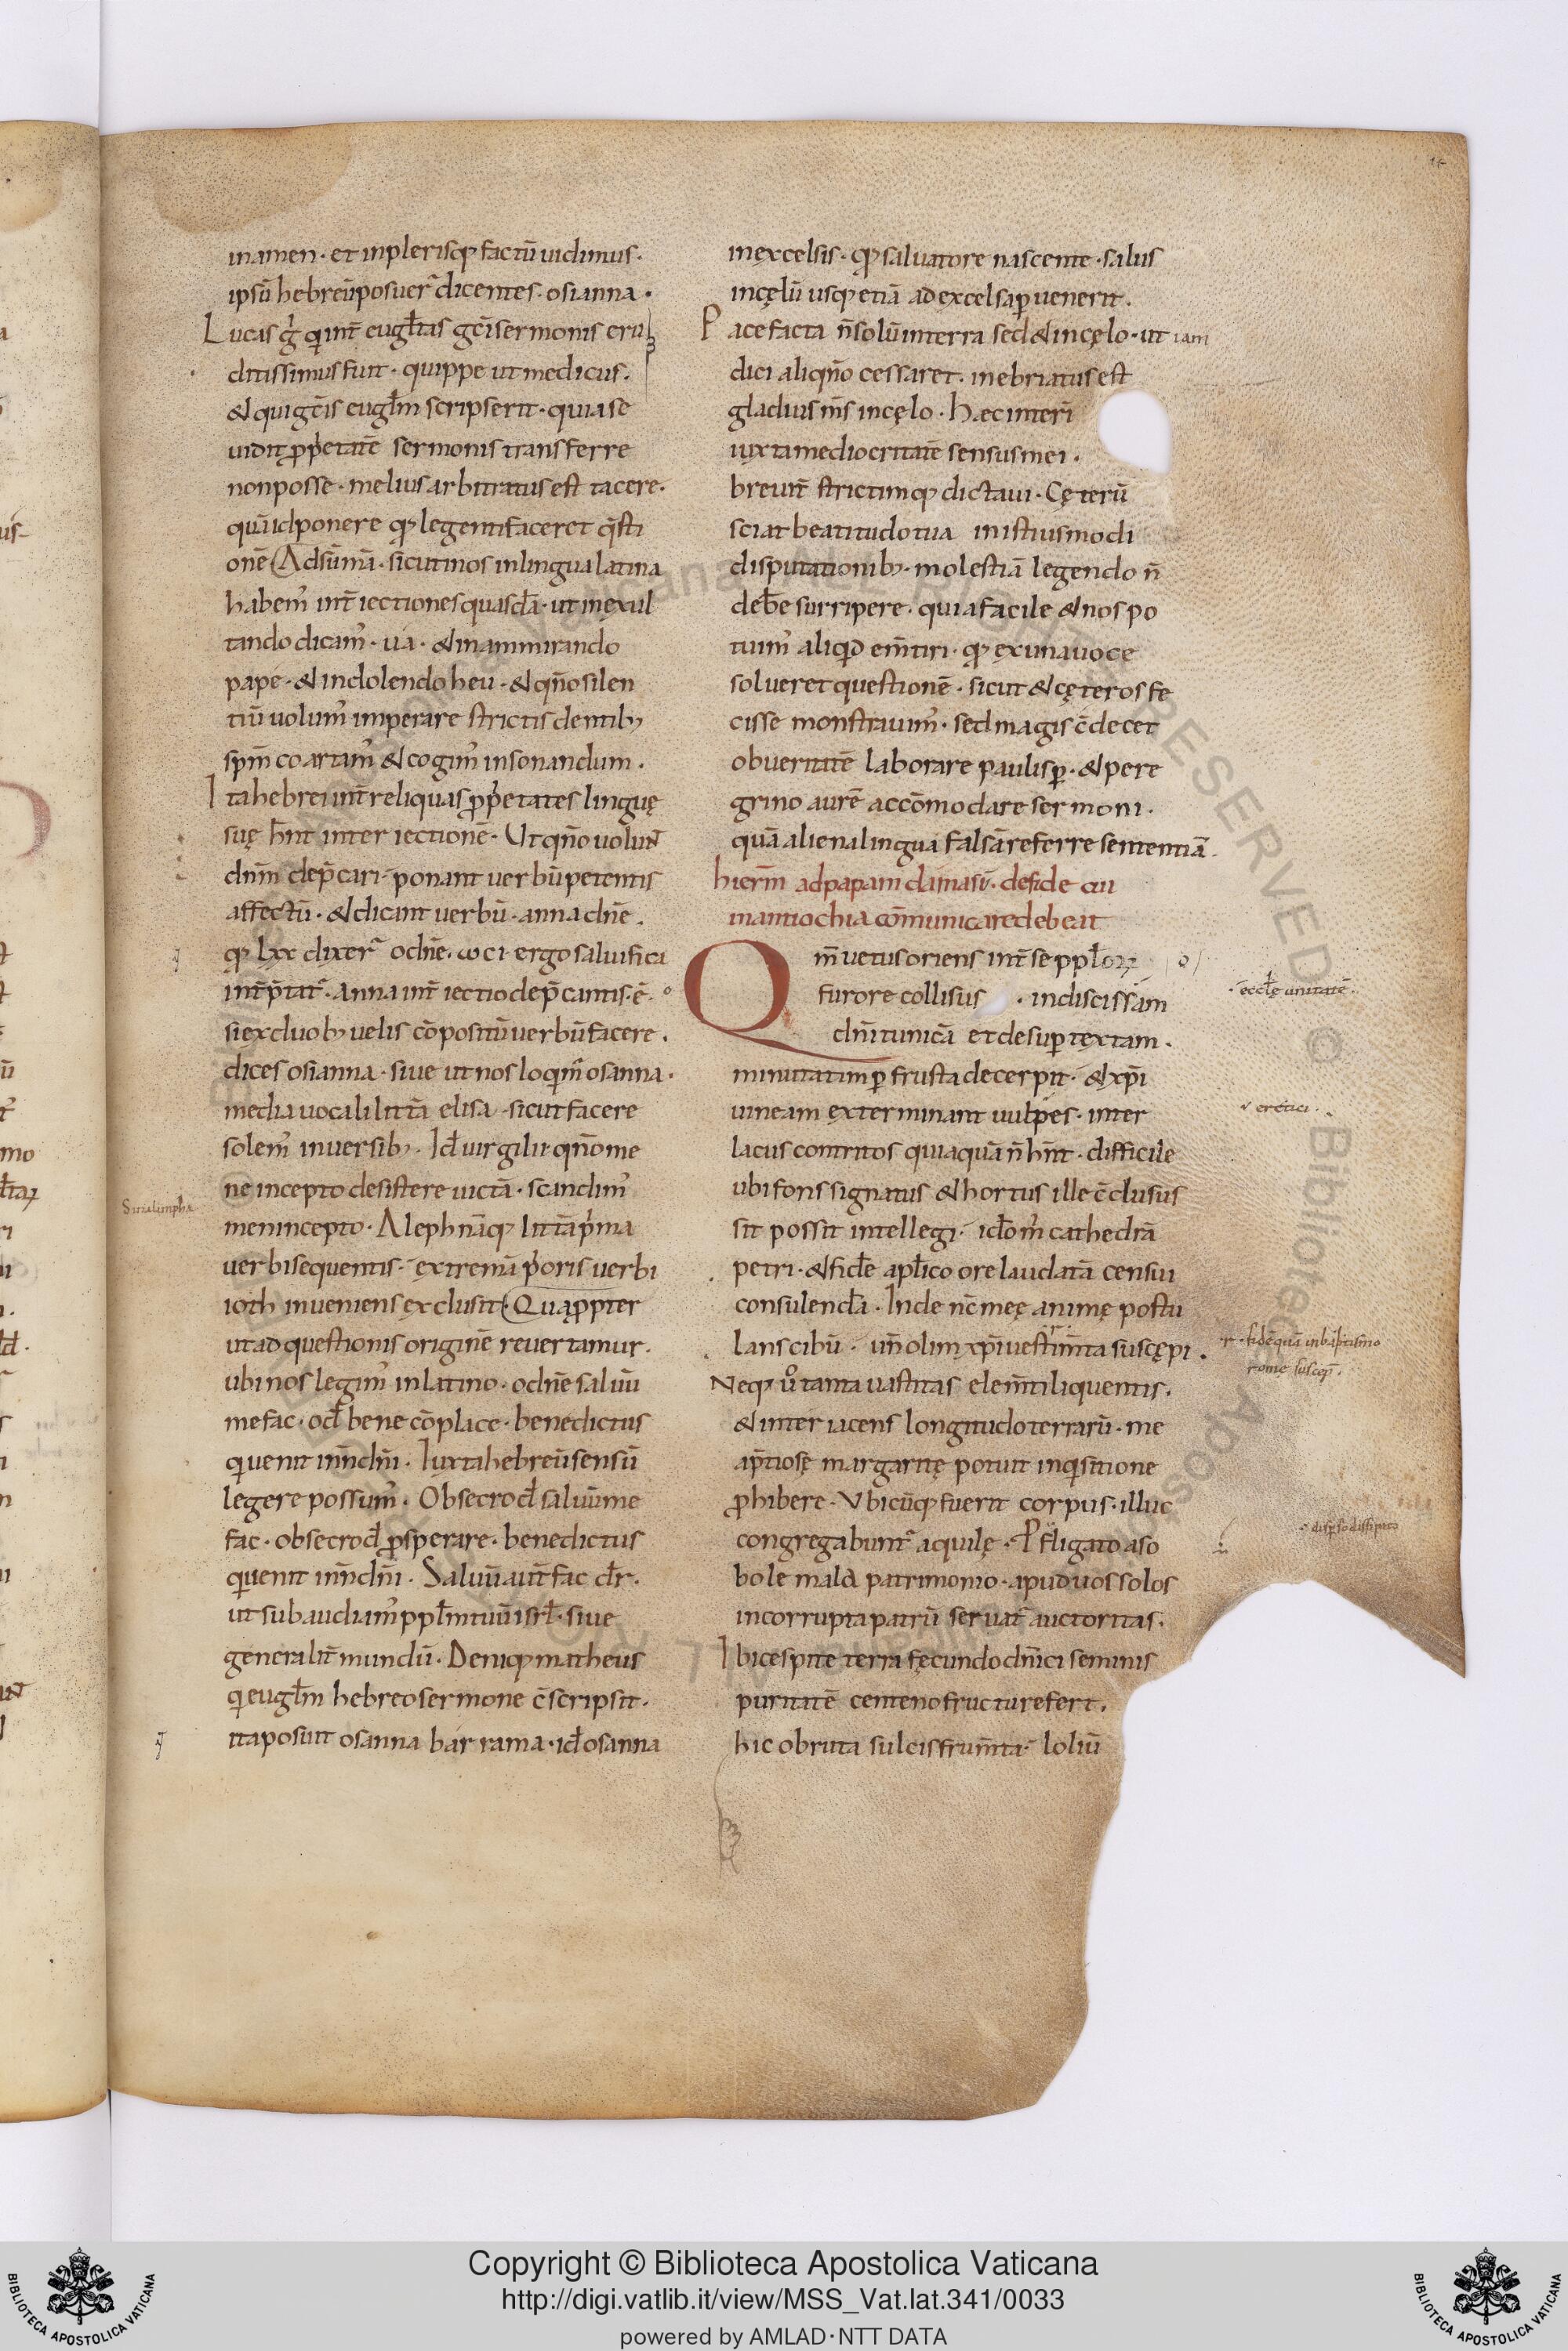 14
in amen · et in plerisq; factū uidimus ·
ipsū hebreū posuer̄ dicentes · osianna ·
Lucas g̊ q int̄ eugl̄tas gc̄i sermonis eru
ditissimus fuit · quippe ut medicus ·
& qui gc̄is eugl̄m scripserit · quia se
uidit p̱p̱etatē sermonis transferre
non posse · melius arbitratus est tacere ·
quā id ponere q; legenti faceret q̄sti
onē Ad sūmā · sicuti nos in lingua latina
habem᾿ int̄iectiones quasdā · ut in exul
tando dicam᾿ · ua · & in ammirando
pape · & in dolendo heu · & qn̄o silen
tiū uolum᾿ imperare strictis dentib;
spm̄ coartam᾿ & cogim᾿ in sonandum ·
Ita hebrei int̄ reliquas p̱p̱etates linguę
suę hn̄t interiectionē · Ut qn̄o uolun̄
dn̄m dep̄cari · ponant uerbū petentis
affectū · & dicant uerbū · anna dn̄e ·
q; lxx dixer̄ o dn̄e · ω ci · ergo saluifica
int̄p̄tat᾿ · anna int̄iectio dep̄cantis · ē ·
si ex duob; uelis cōpositū uerbū facere ·
dices osianna · siue ut nos loqm᾿ osanna ·
media uocali littā elisa · sicut facere
solem᾿ in uersib; · Id᾿ uirgilii · qn̄o me
ne incepto desistere uictā · scandim᾿
Sinalimpha
men incepto · Aleph nāq; littā p̊ma
uerbi sequentis · extremā p̊oris uerbi
ioth inueniens exclusit · Quap̱p̱ter
ut ad questionis originē reuertamur ·
ubi nos legim᾿ in latino · o dn̄e saluū
me fac · o d᾿ bene cōplace · benedictus
q uenit in n̄ dn̄i · Iuxta hebreū sensū
legere possum᾿ · Obsecro d᾿ saluū me
fac · obsecro d᾿ p̱sperare · benedictus
q uenit in n̄ dn̄i · Saluū aut̄ fac dr̄ ·
ut subaudiam᾿ ppl̄m tuū isrl̄ · siue
generalit̄ mundū · Deniq; matheus
q eugl̄m hebreo sermone c̄scripsit ·
ita posuit osanna barrama · id᾿ osanna
in excelsis · q; saluatore nascente · salus
in cęlū usq; etiā ad excelsa p̱uenerit ·
Pace facta n̄ solū in terra sed & in cęlo · ut iam
dici aliqn̄o cessaret · inebriatus est
gladius m̄s in cęlo · Hæc interī
iuxta mediocritatē sensus mei ·
breuit̄ strictimq; dictaui · Cęterū
sciat beatitudo tua in istiusmodi
disputationib; · molestiā legendo n̄
deb̄e surripere · quia facile & nos po
tuim᾿ aliqd em̄tiri · q; ex una uoce
solueret questionē · sicut & cęteros fe
cisse monstrauim᾿ · sed magis c̄decet
ob ueritatē laborare paulisp̱ · & pere
grino aurē accōmodare sermoni ·
quā aliena lingua falsā referre sententiā ·
hierm̄ ad papam damasū · de fide cui
in antiochia cōmunicare debeat
Qm̄ uetus oriens int̄ se ppl̄orꝝ
furore collisus · indiscissam
· eccl̄ę unitatē ·
dn̄i tunicā et desup̱ textam ·
minutatim p̱ frusta decerpit · & xp̄i
uineam exterminant uulpes · inter
v eretici ·
lacus contritos qui aquā n̄ hn̄t · difficile
ubi fons signatus & hortus ille c̄clusus
sit possit intellegi · id᾿om᾿ cathedrā
petri · & fidē apl̄ico ore laudatā censui
consulendā · Inde nc̄ meę animę postu
lans cibū · un̄ olim xp̄i uestim̄ta suscępi ·
· fidē quā in baptismo
rome suscep̄ ·
Neq; ů tanta uastitas elem̄ti liquentis ·
& interiacens longitudo terrarū · me
a p̄tiosę margaritę potuit inq̇sitione
p̱hibere · Vbicūq; fuerit corpus · illuc
congregabunt᾿ aquilę · P fligato a so
· disp̱so dissipato
bolē mala patrimonio · apud uos solos
incorrupta patrū seruat᾿ auctoritas ·
Ibi cespite terra fęcundo dn̄ici seminis
puritatē centeno fructu refert ·
hic obruta sulcis frum̄ta · loliū
Copyright © Biblioteca Apostolica Vaticana
http://digi.vatlib.it/view/MSS_Vat.lat.341/0033
powered by AMLAD·NTT DATA
BIBLIOTECA APOSTOLICA VATICANA
BIBLIOTECA APOSTOLICA VATICANA